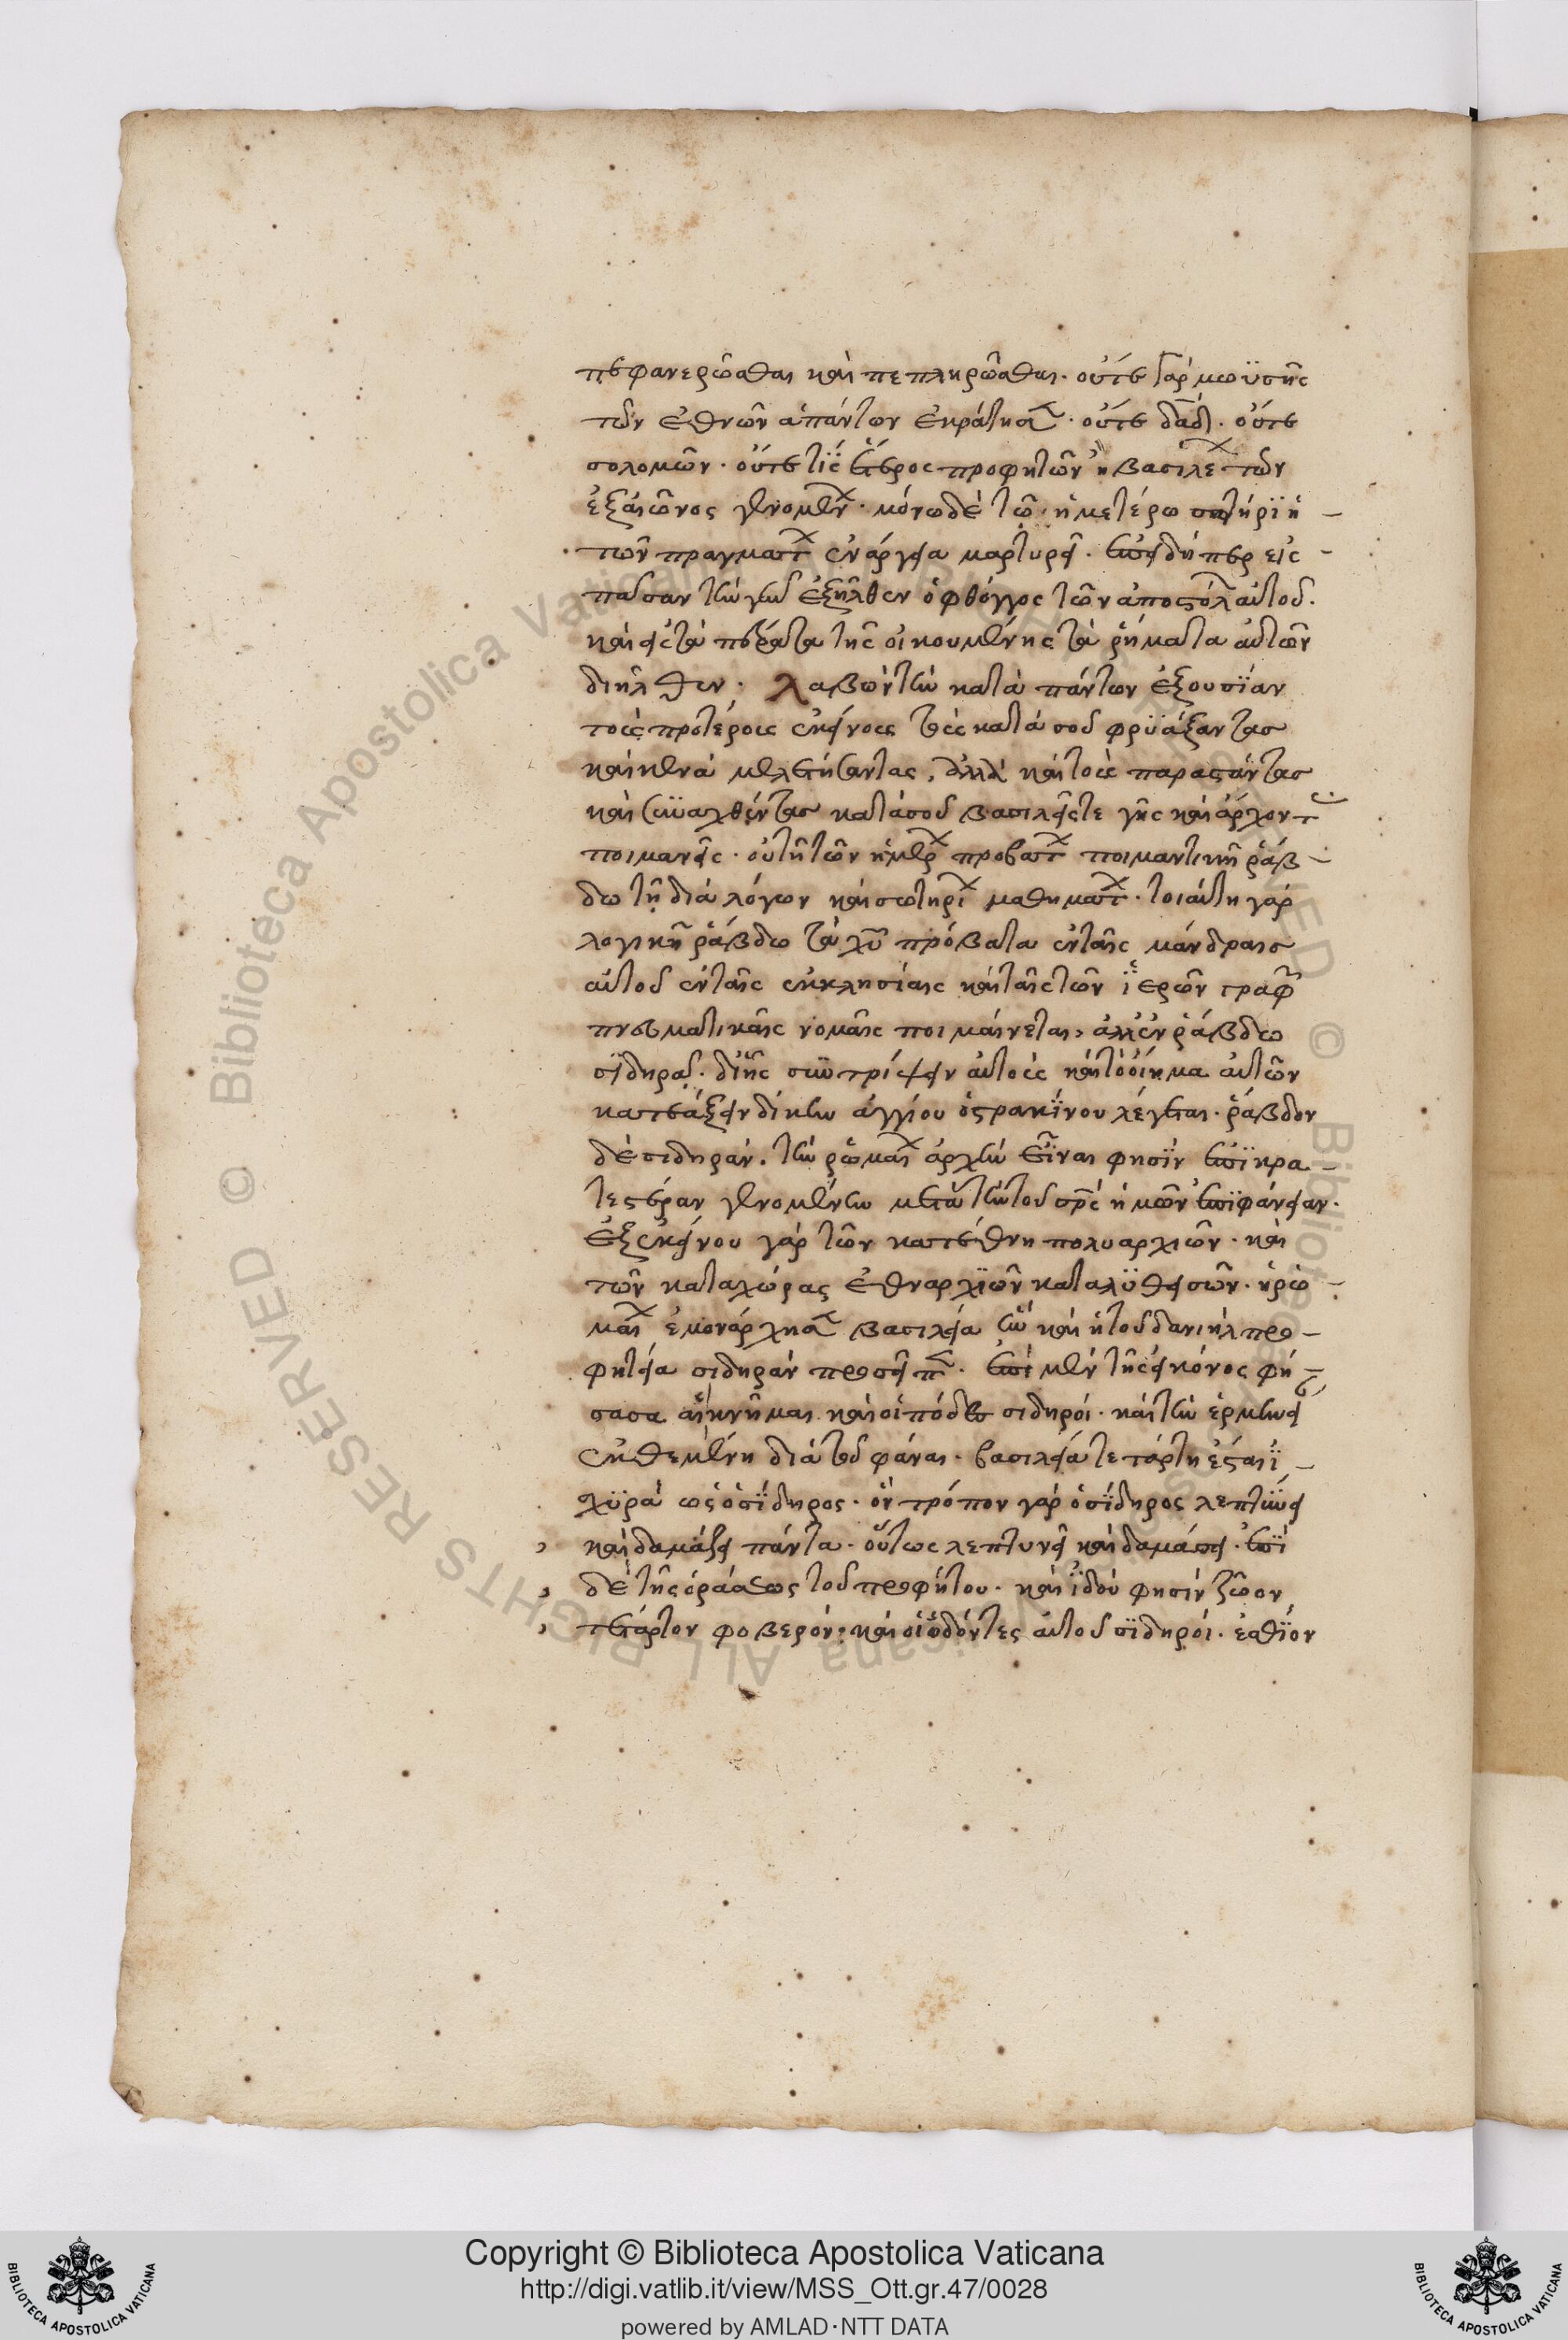 πεφανερῶσθαι καὶ πεπληρῶσθαι. οὔτε γὰρ μωϋσῆς
τῶν ἐθνῶν ἁπάντων ἐκράτησεν. οὔτε δαδ. οὔτε
σολομῶν. οὔτέ τις ἕτερος προφητῶν ἢ βασιλέων τῶν
ἐξαιῶνος γενομένων. μόνω δὲ τῶ ἡμετέρω σωτήρι ἡ
τῶν πραγμάτων ἐνάργεια μαρτυρεῖ. ἐπειδήπερ εἰς
πᾶσαν τὴν γῆν ἐξῆλθεν ὁ φθόγγος τῶν ἀποστόλων αὐτοῦ.
καὶ εἰς τὰ πέρατα τῆς οἰκουμένης τὰ ῥήματα αὐτῶν
διῆλθεν. λαβὼν τὴν κατὰ πάντων ἐξουσίαν
τοὺς προτέροις ἐκείνοις τοὺς κατὰ σοῦ φρυάξαντας
καὶ κενὰ μελετήσαντας, ἀλλὰ καὶ τοὺς παραστάντας
καὶ συναχθέντας κατὰ σοῦ βασιλεῖς τε γῆς καὶ ἄρχοντας
ποιμανεῖς. οὐ τῆ τῶν ἡμέρων προβάτων ποιμαντικῆ ῥάβ
δω τῆ διὰ λόγων καὶ σωτηρίων μαθημάτων. τοιαύτη γὰρ
λογικῆ ῥάβδω τὰ χυ πρόβατα ἐν ταῖς μάνδραις
αὐτοῦ ἐν ταῖς ἐκκλησίαις καὶ ταῖς τῶν ἱερῶν γραφῶν
πνευματικαῖς νομαῖς ποιμαίνεται, ἀλλ' ἐν ῥάβδω
σιδηρᾶ. δι' ἧς συντρίψειν αὐτοὺς καὶ τὸ οἴκημα αὐτῶν
κατεάξειν δίκην ἀγγίου ὀστρακίνου λέγεται. ῥάβδον
δὲ σιδηρὰν. τὴν ῥωμαίων ἀρχὴν εἶναι φησὶν ἐπικρα
τεστέραν γενομένην μετὰ τὴν τοῦ σρς ἡμῶν ἐπιφάνειαν.
ἐξ ἐκείνου γὰρ τῶν κατ' ἔθνη πολυαρχιῶν. καὶ
τῶν κατα χώρας ἐθναρχιῶν καταλυθεισῶν. ἡ ῥω
μαίων ἐμονάρχησε βασιλεία ἣν καὶ ἡ τοῦ δανιὴλ προ
φητεία σιδηρὰν προσεῖπεν. ἐπὶ μὲν τῆς εἰκόνος φή
σασα αἱ κνῆμαι καὶ οἱ πόδες σιδηροί. καὶ τὴν ἑρμηνεί
ἐκθεμένη διὰ τοῦ φάναι. βασιλεία τετάρτη ἔσται ἰ
χυρὰ ὡς ὁ σίδηρος. ὃν τρόπον γὰρ ὁ σίδηρος λεπτύνει
καὶ δαμάζει πάντα. οὕτως λεπτυνεῖ καὶ δαμάσει. ἐπὶ
δὲ τῆς ὁράσεως τοῦ προφήτου. καὶ ἰδοὺ φησὶν ζῶον
τέταρτον φοβερὸν. καὶ οἱ ὀδόντες αὐτοῦ σιδηροί. ἐσθίον
Copyright © Biblioteca Apostolica Vaticana
http://digi.vatlib.it/view/MSS_Ott.gr.47/0028
powered by AMLAD·NTT DATA